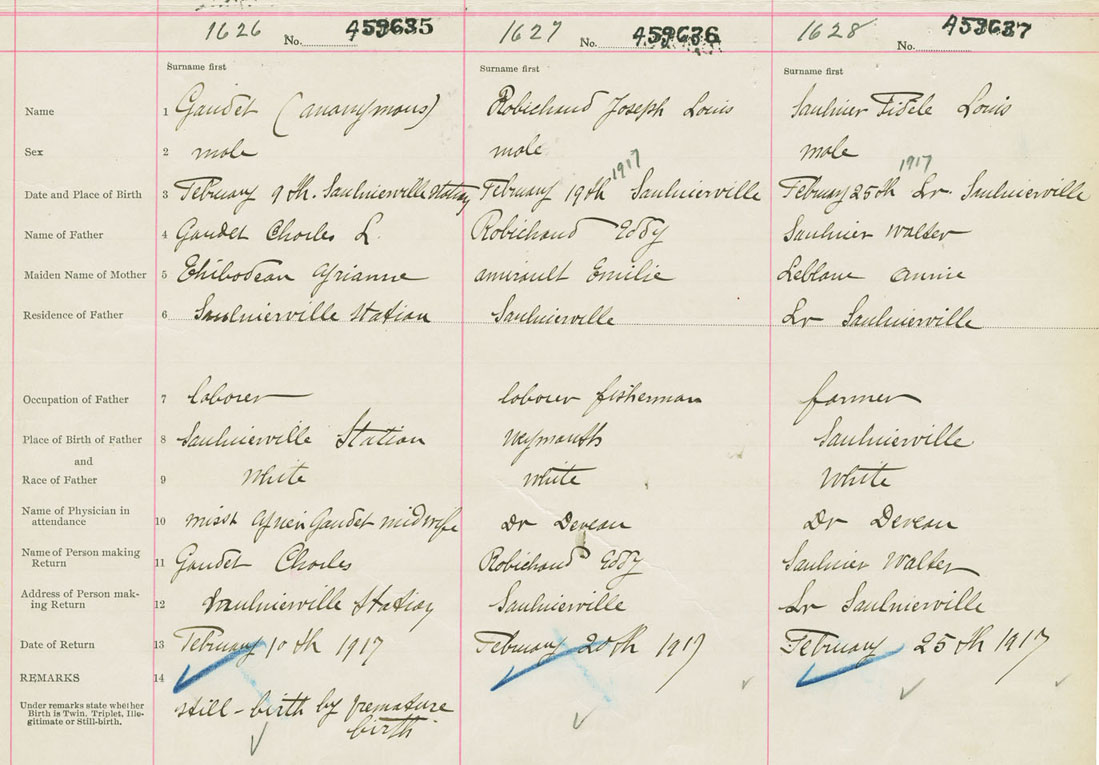 1626 No. 459635 1627 No. 459636 1628 No. 459637
Surname first Surname first Surname first
Name 1 Gaudet (anonymous) Robichaud Joseph Louis Saulnier Fidele Louis
Sex 2 male male male
1917 1917
Date and Place of Birth 3 February 9th. Saulnierville Station February 19th Saulnierville February 25th Lr Saulnierville
Name of Father 4 Gaudet Charles L. Robichaud Eddy Saulnier Walter
Maiden Name of Mother 5 Thibodeau Amirault Emilie Leblanc Annie
Residence of Father 6 Saulnierville Station Saulnierville Lr Saulnierville
Occupation of Father 7 laborer laborer fisherman farmer
Place of Birth of Father 8 Saulnierville Station Weymouth Saulnierville
and
Race of Father 9 White white White
Name of Physician in
attendance 10 Gaudet midwife Dr Deveau Dr Deveau
Name of Person making
Return 11 Gaudet Charles Robichaud Eddy Saulnier Walter
Address of Person mak-
ing Return 12 Saulnierville Station Saulnierville Lr Saulnierville
Date of Return 13 February 10th 1917 February 20th 1917 February 25th 1917
REMARKS 14
Under remarks state whether
Birth is Twin, Triplet, Ille-
gitimate or Still-birth.
still-birth by premature
birth